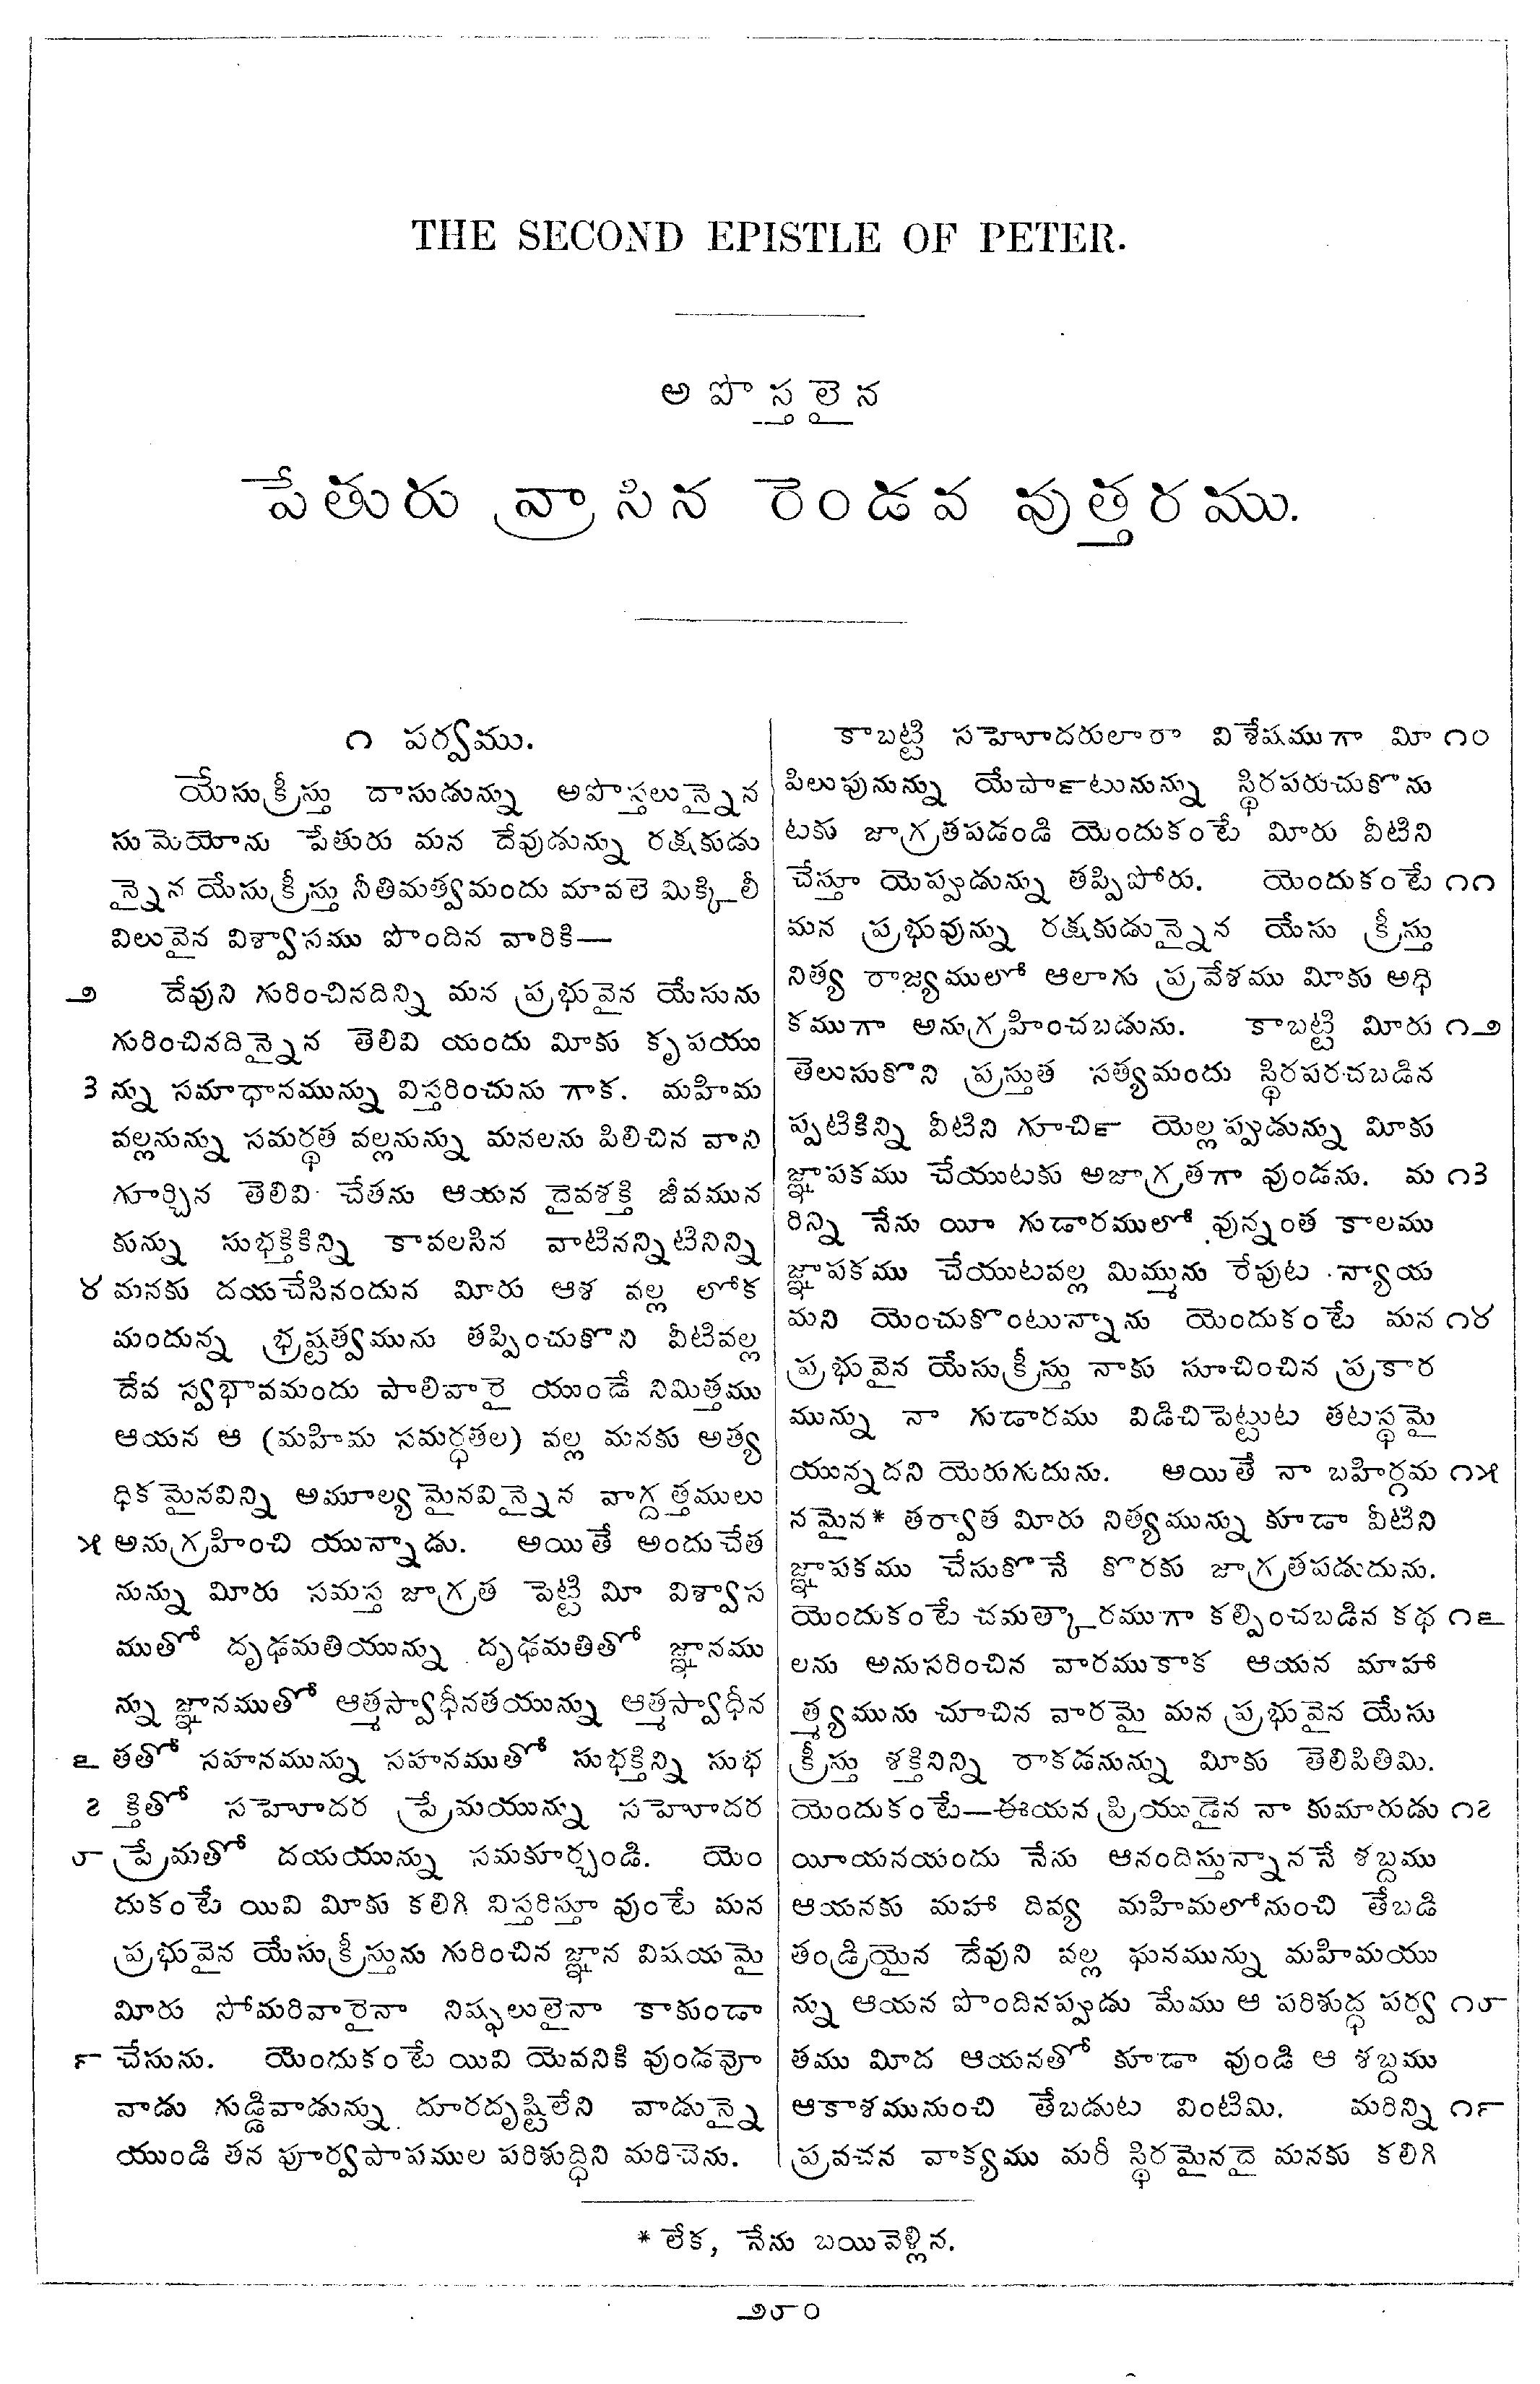 THE SECOND EPISTLE OF PETER.
అపొస్తలైన
పేతురు వ్రాసిన రెండవ వుత్తరము.
౧ పర్వము.
యేసుక్రీస్తు దాసుడున్ను అపొస్తలున్నైన
సుమెయోను పేతురు మన దేవుడున్ను రక్షకుడు
న్నైన యేసుక్రీస్తు నీతిమత్వమందు మావలె మిక్కిలీ
విలువైన విశ్వాసము పొందిన వారికి—
౨ దేవుని గురించినదిన్ని మన ప్రభువైన యేసును
గురించినదిన్నైన తెలివి యందు మీకు కృపయు
౩ న్ను సమాధానమున్ను విస్తరించును గాక. మహిమ
వల్లనున్ను సమర్థత వల్లనున్ను మనలను పిలిచిన వాని
గూర్చిన తెలివి చేతను ఆయన దైవశక్తి జీవమున
కున్ను సుభక్తికిన్ని కావలసిన వాటినన్నిటినిన్ని
౪ మనకు దయచేసినందున మీరు ఆశ వల్ల లోక
మందున్న భ్రష్టత్వమును తప్పించుకొని వీటివల్ల
దేవ స్వభావమందు పాలివారై యుండే నిమిత్తము
ఆయన ఆ (మహిమ సమర్ధతల) వల్ల మనకు అత్య
ధికమైనవిన్ని అమూల్యమైనవిన్నైన వాగ్దత్తములు
౫ అనుగ్రహించి యున్నాడు. అయితే అందుచేత
నున్ను మీరు సమస్త జాగ్రత పెట్టి మీ విశ్వాస
ముతో దృఢమతియున్ను దృఢమతితో జ్ఞానము
న్ను జ్ఞానముతో ఆత్మస్వాధీనతయున్ను ఆత్మస్వాధీన
౬ తతో సహనమున్ను సహనముతో సుభక్తిన్ని సుభ
౭ క్తితో సహోదర ప్రేమయున్ను సహోదర
౮ ప్రేమతో దయయున్ను సమకూర్చండి. యెం
దుకంటే యివి మీకు కలిగి విస్తరిస్తూ వుంటే మన
ప్రభువైన యేసుక్రీస్తును గురించిన జ్ఞాన విషయమై
మీరు సోమరివారైనా నిష్ఫలులైనా కాకుండా
౯ చేసును. యెందుకంటే యివి యెవనికి వుండవో
వాడు గుడ్డివాడున్ను దూరదృష్టిలేని వాడున్నై
యుండి తన పూర్వపాపముల పరిశుద్ధిని మరిచెను.
కాబట్టి సహోదరులారా విశేషముగా మీ ౧౦
పిలుపునున్ను యేపాఁటునున్ను స్థిరపరుచుకొను
టకు జాగ్రతపడండి యెందుకంటే మీరు వీటిని
చేస్తూ యెప్పుడున్ను తప్పిపోరు. యెందుకంటే ౧౧
మన ప్రభువున్ను రక్షకుడున్నైన యేసు క్రీస్తు
నిత్య రాజ్యములో ఆలాగు ప్రవేశము మీకు అధి
కముగా అనుగ్రహించబడును. కాబట్టి మీరు ౧౨
తెలుసుకొని ప్రస్తుత సత్యమందు స్థిరపరచబడిన
ప్పటికిన్ని వీటిని గూచి౯ యెల్లప్పుడున్ను మీకు
జ్ఞాపకము చేయుటకు అజాగ్రతగా వుండను. మ ౧౩
రిన్ని నేను యీ గుడారములో వున్నంత కాలము
జ్ఞాపకము చేయుటవల్ల మిమ్మును రేపుట న్యాయ
మని యెంచుకొంటున్నాను యెందుకంటే మన ౧౪
ప్రభువైన యేసుక్రీస్తు నాకు సూచించిన ప్రకార
మున్ను నా గుడారము విడిచిపెట్టుట తటస్థమై
యున్నదని యెరుగుదును. అయితే నా బహిర్గమ ౧౫
నమైన* తర్వాత మీరు నిత్యమున్ను కూడా వీటిని
జ్ఞాపకము చేసుకొనే కొరకు జాగ్రతపడుదును.
యెందుకంటే చమత్కారముగా కల్పించబడిన కథ ౧౬
లను అనుసరించిన వారముకాక ఆయన మాహా
త్మ్యమును చూచిన వారమై మన ప్రభువైన యేసు
క్రీస్తు శక్తినిన్ని రాకడనున్ను మీకు తెలిపితిమి.
యెందుకంటే—ఈయన ప్రియుడైన నా కుమారుడు ౧౭
యీయనయందు నేను ఆనందిస్తున్నాననే శబ్దము
ఆయనకు మహా దివ్య మహిమలోనుంచి తేబడి
తండ్రియైన దేవుని వల్ల ఘనమున్ను మహిమయు
న్ను ఆయన పొందినప్పుడు మేము ఆ పరిశుద్ధ పర్వ ౧౮
తము మీద ఆయనతో కూడా వుండి ఆ శబ్దము
ఆకాశమునుంచి తేబడుట వింటిమి. మరిన్ని ౧౯
ప్రవచన వాక్యము మరీ స్థిరమైనదై మనకు కలిగి
* లేక, నేను బయివెళ్లిన.
౨౮౦